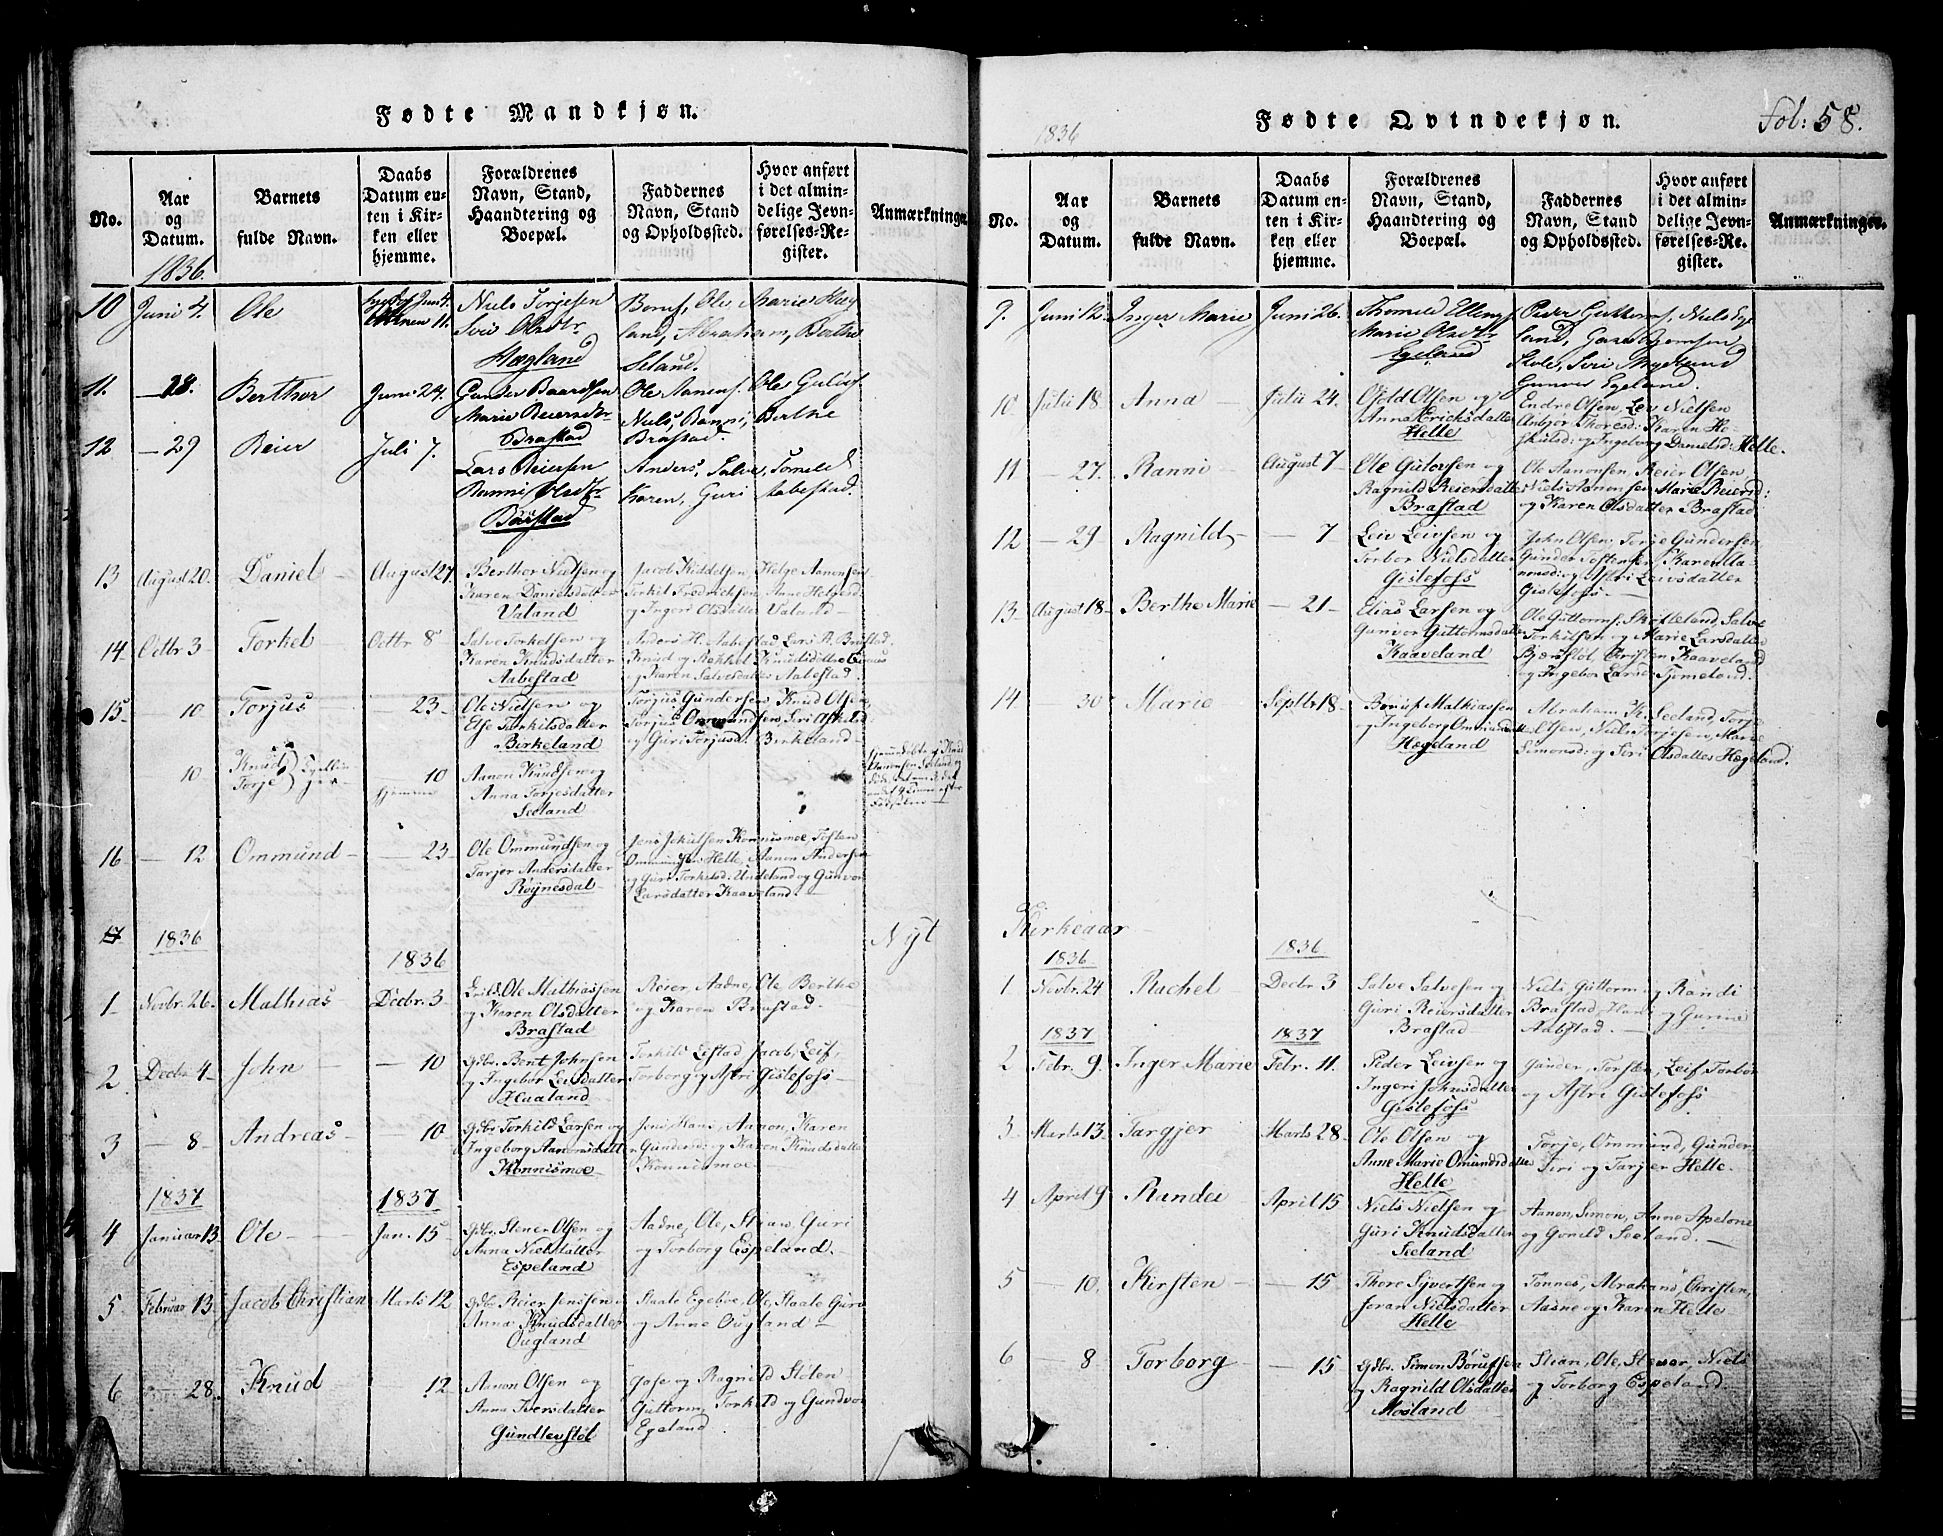 Fødte Mandkjøn.
No.
Aar
og
Datum.
Barnets
fulde Navn.
Daabs
Datum en-
ten i Kir-
ken eller
hjemme.
Forældrenes
Navn, Stand,
Haandtering og
Boepæl.
Faddernes
Navn, Stand
og Opholdssted.
Hvor anført
i det almin-
delige Jevn-
førelses-Re-
gister.
Anmærkninger.
1836
10 Juni 4. Ole
Niels Torjesen
Siri Olsdtr
Hægland
Boruf, Ole, Marie Hæg
land, Abraham, Berthe
Seland.
11. — 18. Berthor Juni 24.
Gunder Baardsen
Marie Reiersdtr
Brastad
Ole Aanens. Ole Gutors.
Niels, Ranni, Berthe
Brastad.
12 — 29 Reier Juli 7.
Lars Reiersen
Ranni Olsdtr
Brastad
Anders, Salve, Tomeld
Karen, Guri Aabestad.
13 August 20. Daniel August 27.
Berthor Nielsen og
Karen Danielsdatter
Valand
Jacob Kiddelsen, Helge Aanonsen
Torkil Fredricksen, Anne Helgesd
og Ingeri Olsdatter Valand
14 Octbr 3 Torkel Octbr 8
Salve Torkelsen og
Karen Knudsdatter
Aabestad
Anders H. Aabestad, Lars R. Brastad,
Knud og Rakkel Knudsdottre
og Karen Salvesdatter Aabestad.
15 10 Torjus — 23
Ole Nielsen og
Else Torkilsdatter
Birkeland
Torjus Gundersen, Knud Olsen,
Torjus Ommundsen, Siri Askelsd
og Guri Torjusd. Birkeland
— 10 Knud
Torje
— 10
hjemme
Aanon Knudsen og
Anna Torjesdatter
Seeland
16 — 12 Ommund — 23
Ole Ommundsen og
Tarjer Andersdatter
Røynesdal
Jens Jokulsen Konnismoe, Tosten
Ommundsen Helle, Aanon Andersen
og Guri Torkilsd: Undeland og Gunvor
Larsdatter Kaaveland.
17 1836 1836 Nyt
1 Novbr. 26. Mathias Decbr. 3
Ole Mathiassen
og Karen Olsdatter
Brastad
Reier, Aadne, Ole Berthe
og Karen Brastad.
2 Decbr 4 John — 10
Gdbr. Bent Johnsen
og Ingebor Leivsdatter
Haaland
Torkild Leistad, Jacob, Leif,
Torborg og Astri Gislefoss
3 — 8 Andreas 10
Gdbr Torkild Larsen og
Ingeborg Aanonsdatt
Konnismoe
Joni, Hans, Aanon, Karen
Gundersd: og Karen Knudsdatter
Konnismoe
1837 1837
4 Januar 13. Ole Jan. 15
Gdbr. Stener Olsen og
Anna Nielsdatter
Espeland
Aadne, Ole, Staaw, Guri
og Torborg Espeland.
5 Februar 13. Jacob Christian Marts 12
Gdbr. Reier Jensen
Anna Knudsdatter
Ougland
Staale Egeboe, Ole, Staale Guri
og Anne Ougland
6 28. Knud — 12
Aanon Olsen og
Anna Iversdatter
Gundlevstøl
og Ragnild Stølen
Guttorm, Torkild og Gundvor
Egeland
1836 Fødte Qvindekjøn. Fol: 58.
No.
Aar
og
Datum.
Barnets
fulde Navn.
Daabs
Datum en-
ten i Kir-
ken eller
hjemme.
Forældrenes
Navn, Stand,
Haandtering og
Boepæl.
Faddernes
Navn, Stand
og Opholdssted.
Hvor anført
i det almin-
delige Jevn-
førelses-Re-
gister.
Anmærkninger.
9. Juni 12. Inger Marie Juni 26.
Thomeld Ellings
Marie Olsdtr
Egeland
Peder Guttorms, Niels Ege
land,
Stole, Siri
Gunvor Egeland.
10 Julii 18. Anna Julii 24.
Osold Olsen og
Anna Ericksdatter
Helle
Endre Olsen, Lev Nielsen
Anbjør Thoresd: Karen Ho-
skulsd: og Ingeborg Danielsd: Helle.
11 — 27. Ranni August 7
Ole Gutorsen og
Ragnild Reiersdatter
Brastad
Ole Aanonsen, Reier Olsen
Niels Aanonsen Marie Reiersd:
og Karen Olsdatter Brastad
12 — 29 Ragnild — 7
Leiv Leivsen og
Torbor Nielsdatter
Gislefoss
John Olsen, Torje Gundersen
Gunder Tostensen, Karen Aa-
nonsd: og Astri Leivsdatter
Gislefoss
13. August 18. Berthe Marie — 21
Elias Larsen og
Gunvor Guttormsdatter
Kaaveland
Ole Guttorms. Skofteland, Salve
Torkilsen og Marie Larsdatter
Bjærstøl, Christen Kaaveland
og Ingebor Larsd: Tjomeland.
14 30 Marie Septbr 18.
Boruf Mathiassen
og Ingeborg Ommunds
Hægeland
Abraham K. Seeland, Torje
Elsen, Niels Torjesen, Marie
Simonsd: og Siri Olsdatter Hægeland.
Kirkeaar
1836 1836
1 Novbr. 24 Rachel Decbr 3
Salve Salvesen og
Guri Reiersdatter
Brastad
Niels, Guttorm og Randi
Brastad, Hans og Gurine
Aabstad.
1837 1837
2 Febr. 9. Inger Marie Febr. 11.
Peder Leivsen og
Ingeri Johnsdatter
Gislefoss
Gunder, Torsten, Leif, Torbor
og Astri Gislefoss
3 Marts 13. Targjer Marts 28
Ole Olsen og
Anne Marie Omundsdatter
Helle
Torje, Ommund, Gunder,
Siri og Tarjer Helle.
4 April 9 Rundei April 15
Niels Nielsen og
Guri Knudsdatter
Seeland
Aanon, Simon, Anne Apelone
og Gonild Seeland.
5 — 10. Kirsten — 15
Thore Sivertsen og
Joran Nielsdatter
Helle
Tonnes, Abraham, Christen,
Aasne og Karen Helle
6 8 Torborg — 15
Gdbr. Simon Børufsen
og Ragnild Olsdatter
Mosland
Stian, Ole, Stener, Niels
og Torborg Espeland.